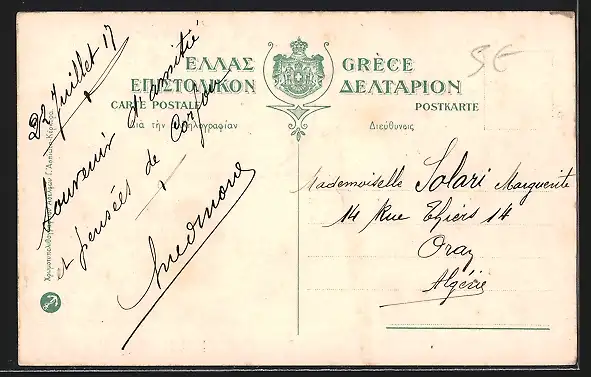 22 Juillet 17
Souvenir d'amitié
et pensées de Corfou
ΕΛΛΑΣ GRÈCE
ΕΠΙΣΤΟΛΙΚΟΝ ΔΕΛΤΑΡΙΟΝ
CARTE POSTALE POSTKARTE
Διὰ τὴν Διεύθυνσις
5€
Mademoiselle Solari Marguerite
14 Rue Thiers 14
Oran
Algérie